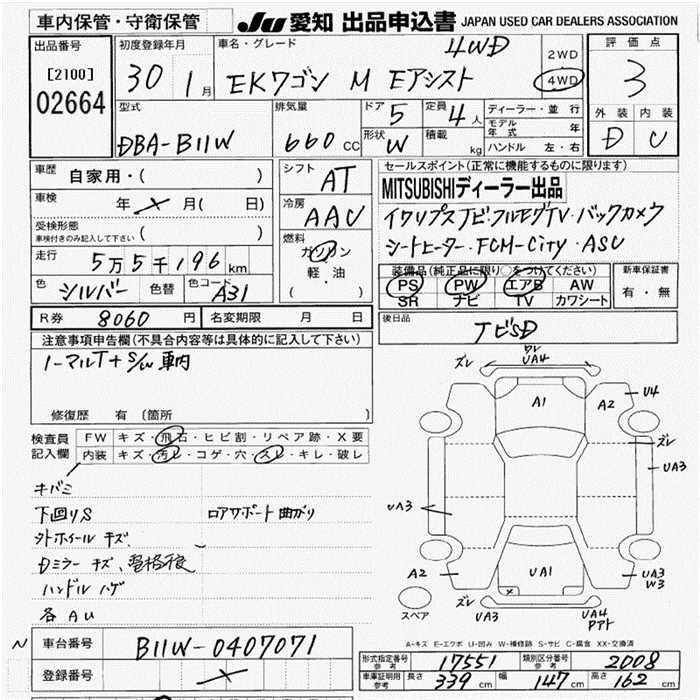 車内保管・守衛保管
JU 愛知 出品申込書 JAPAN USED CAR DEALERS ASSOCIATION
出品番号
[2100]
02664
初度登録年月
30 1月
車名・グレード
4WD
EKワゴン M Eアシスト
2WD
4WD
評価点
3
外装 内装
D U
型式
DBA-B11W
排気量
660 CC
ドア 5
形状 W
定員 4人
積載 kg
ディーラー・並行
モデル年式 年
ハンドル 左・右
車歴 自家用・( )
車検 年 月( 日)
受検形態
車検付きのみ記入して下さい ( )
走行 5万5千196km
色 シルバー 色替 色コード A31
シフト AT
冷房 AAC
燃料
ガソリン
軽・油
( )
セールスポイント(正常に機能するものに限ります)
MITSUBISHIディーラー出品
イクリプスナビ・フルセグTV・バックカメラ
シートヒーター・FCM-City・ASC
装備品(純正品に限り○をつけてください)
PS PW エアB AW
SR ナビ TV カワシート
新車保証書
有・無
R券 8060円 名変期限 月 日
後日品
ナビSD
注意事項申告欄(不具合内容等は具体的に記入して下さい)
ノーマルT+S/W 車内
修復歴 有 (箇所 )
検査員記入欄
FW キズ・飛石・ヒビ割・リペア跡・X要
内装 キズ・汚レ・コゲ・穴・スレ・キレ・破レ
キバミ
下回りS ロアサポート曲がり
外ホイールキズ
Dミラーキズ、
ハンドルハゲ
各AU
ズレ UA4 ズレ
A1
A2
U4
ズレ
UA3
UA3
A2
UA1
UA3
W3
スペア
ズレ UA3
UA4
A-キズ E-エクボ U-凹み W-補修跡 S-サビ C-腐食 XX-交換済
N 車台番号 B11W-0407071
登録番号
形式指定番号 参考 17551 類別区分番号 参考 2008
車庫証明用 参考 長さ 339cm 幅 147cm 高さ 162cm